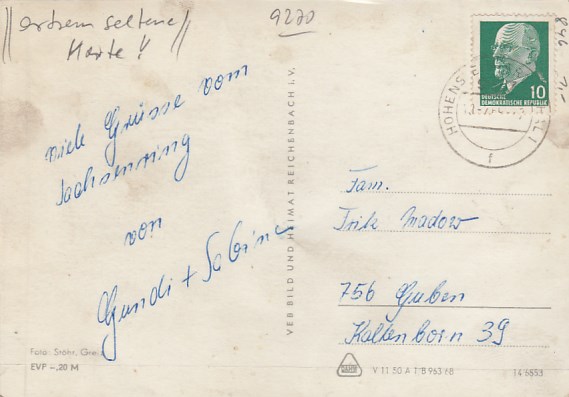 extrem seltene
Karte!!
9270
viele Grüsse vom
Sachsenring
von
Gundi + Sabine
Foto: Stöhr, Gre
EVP –,20 M
VEB BILD UND HEIMAT REICHENBACH i. V.
10
DEUTSCHE
DEMOKRATISCHE REPUBLIK
HOHENS
f
Fam.
Fritz Madow
756 Guben
Kaltenborn 39
V 11 50 A 1/B 963/68
14 5553